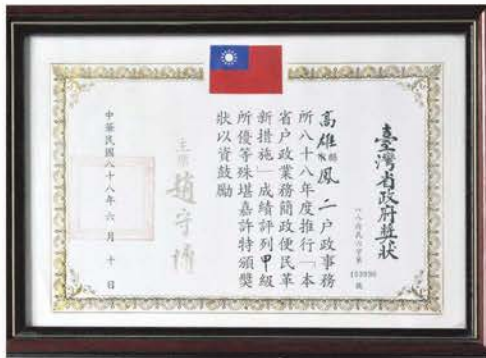 臺灣省政府獎狀
八八府民六字第
153990
號
高雄縣鳳二戶政事務
所八十八年度推行「本
省戶政業務簡政便民革
新措施」成績評列甲級
所優等殊堪嘉許特頒獎
狀以資鼓勵
主席 趙守博
中華民國八十八年六月十日